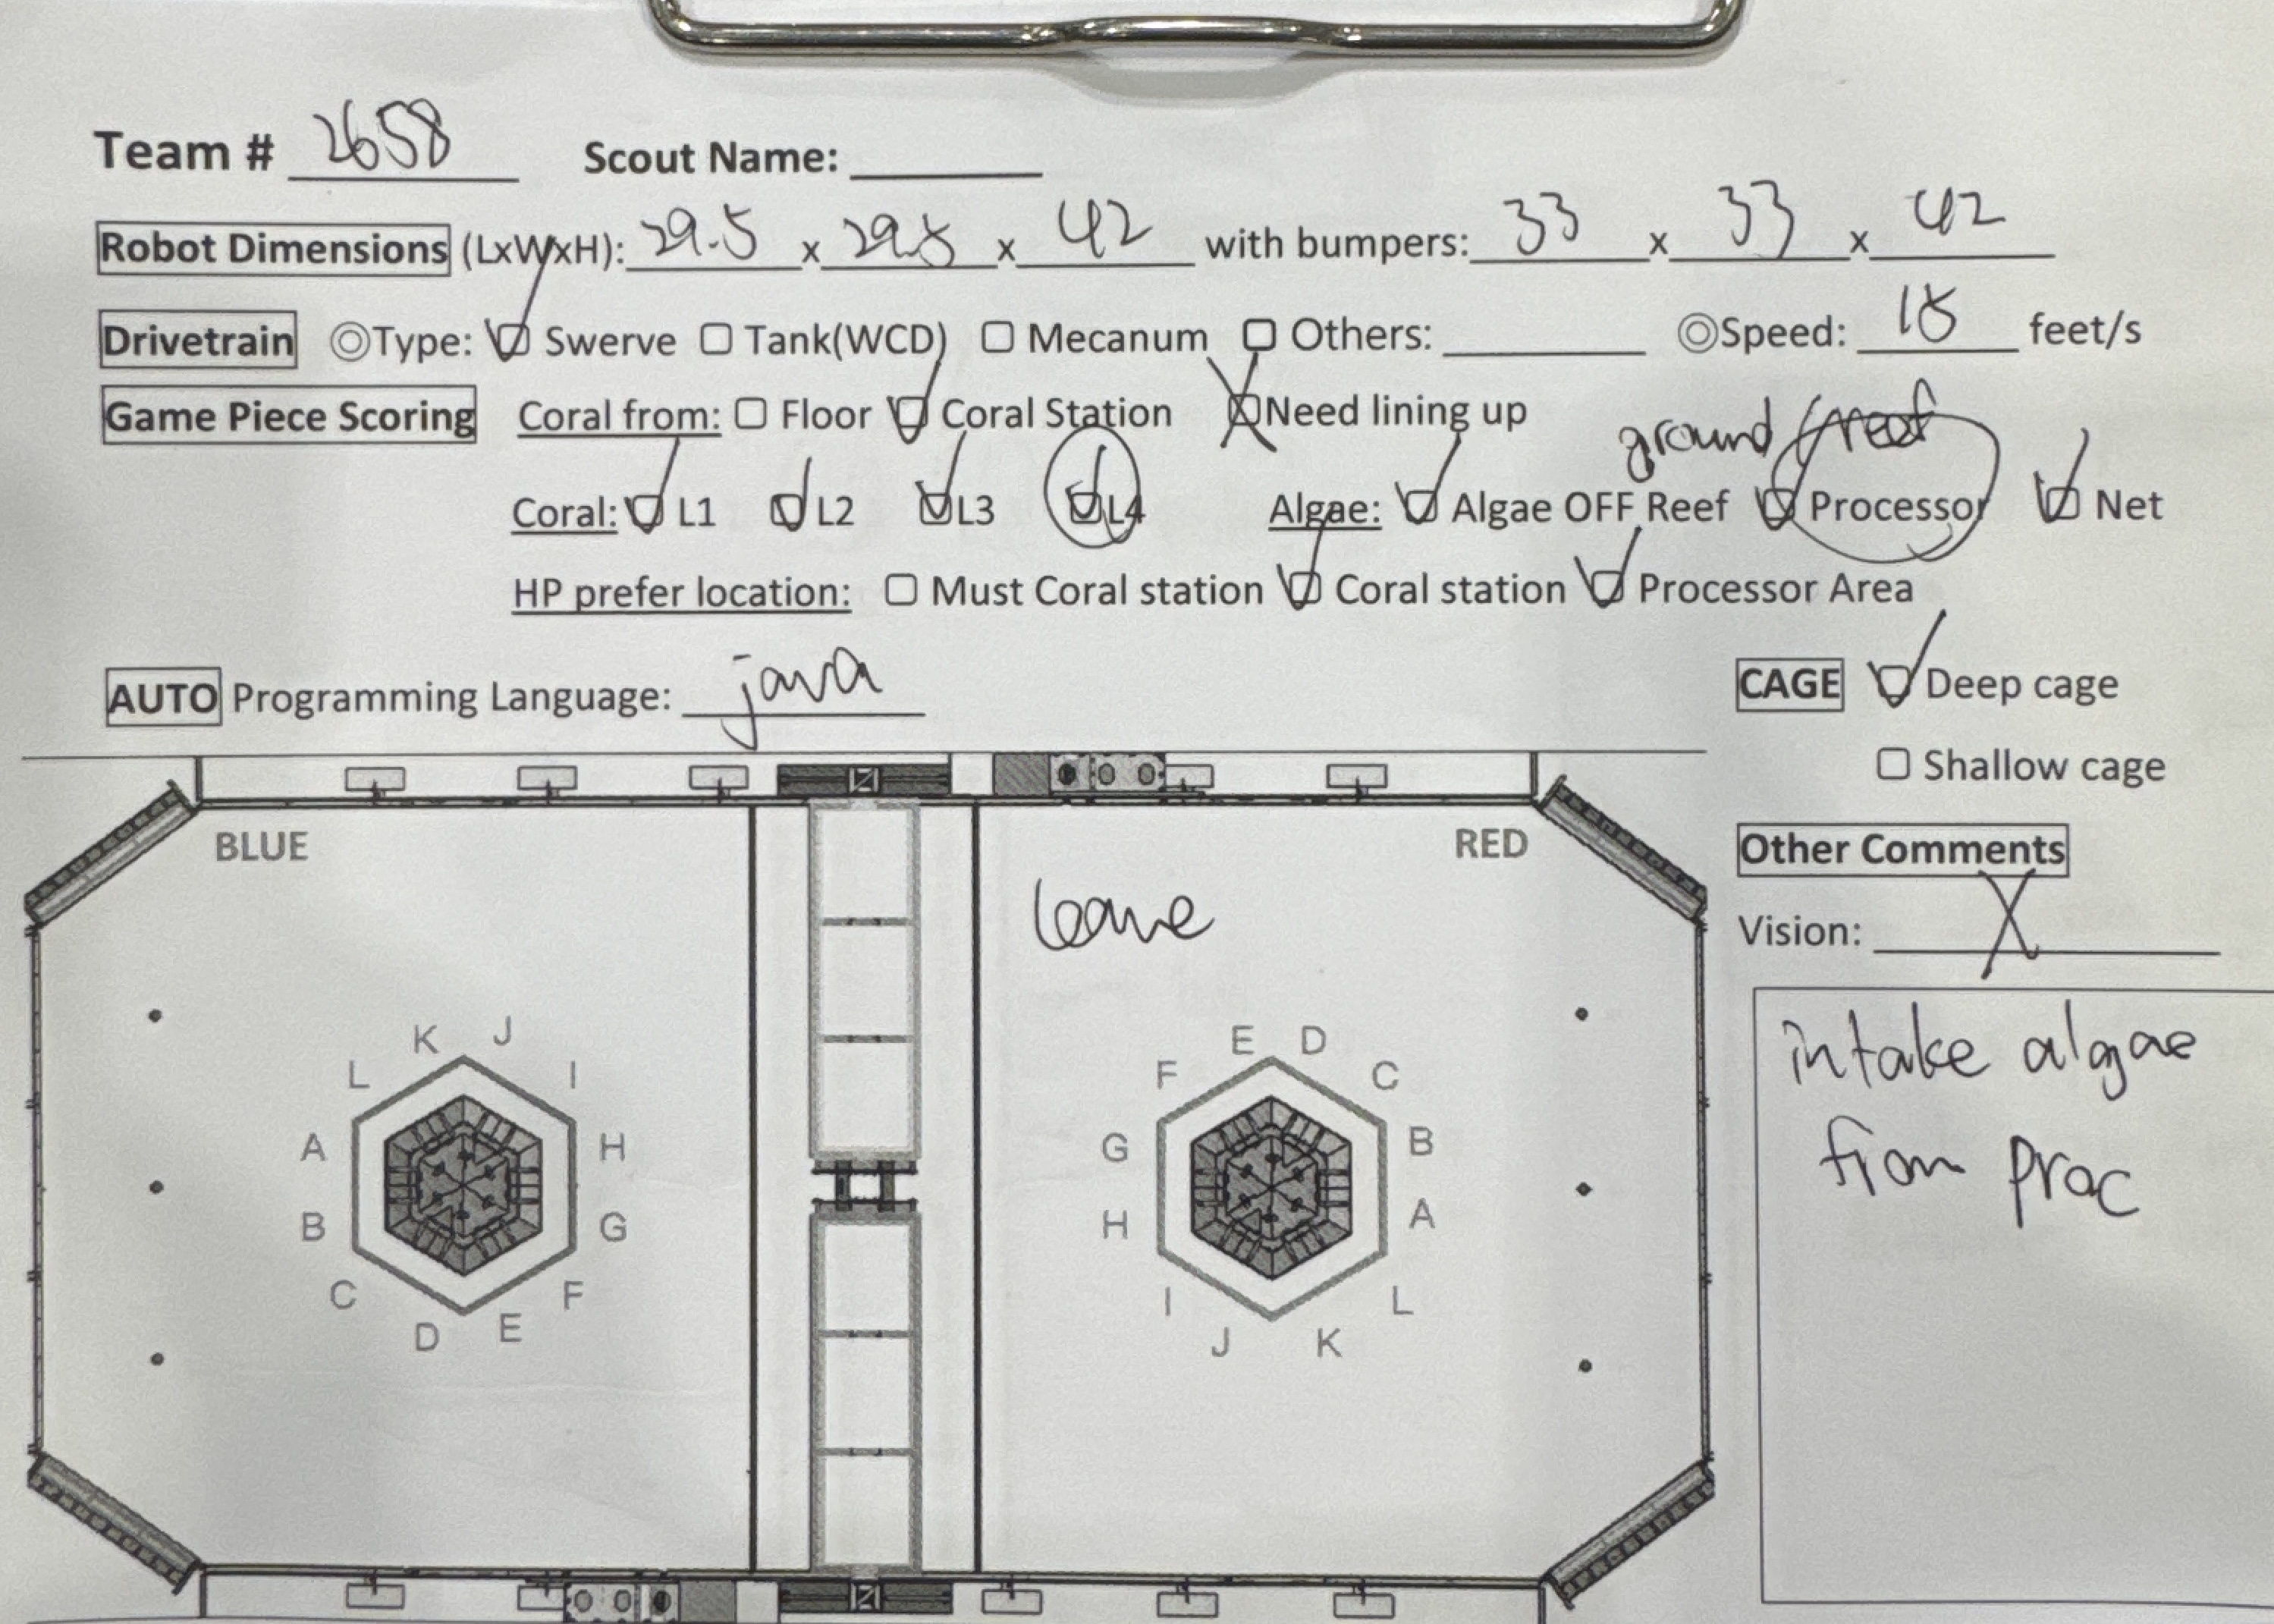 Team # 2658 Scout Name:
Robot Dimensions (LxWxH): 29.5 x 29.5 x 42 with bumpers: 33 x 33 x 42
Drivetrain ◎Type: ☑ Swerve ☐ Tank(WCD) ☐ Mecanum ☐ Others: ◎Speed: 18 feet/s
Game Piece Scoring Coral from: ☐ Floor ☑ Coral Station ☒ Need lining up
ground / reef
Coral: ☑ L1 ☑ L2 ☑ L3 ☑ L4 Algae: ☑ Algae OFF Reef ☑ Processor ☑ Net
HP prefer location: ☐ Must Coral station ☑ Coral station ☑ Processor Area
AUTO Programming Language: java
CAGE ☑ Deep cage
☐ Shallow cage
BLUE
RED
Other Comments
leave
Vision: X
intake algae
from proc
K J
L I
A H
B G
C F
D E
E D
F C
G B
H A
I L
J K